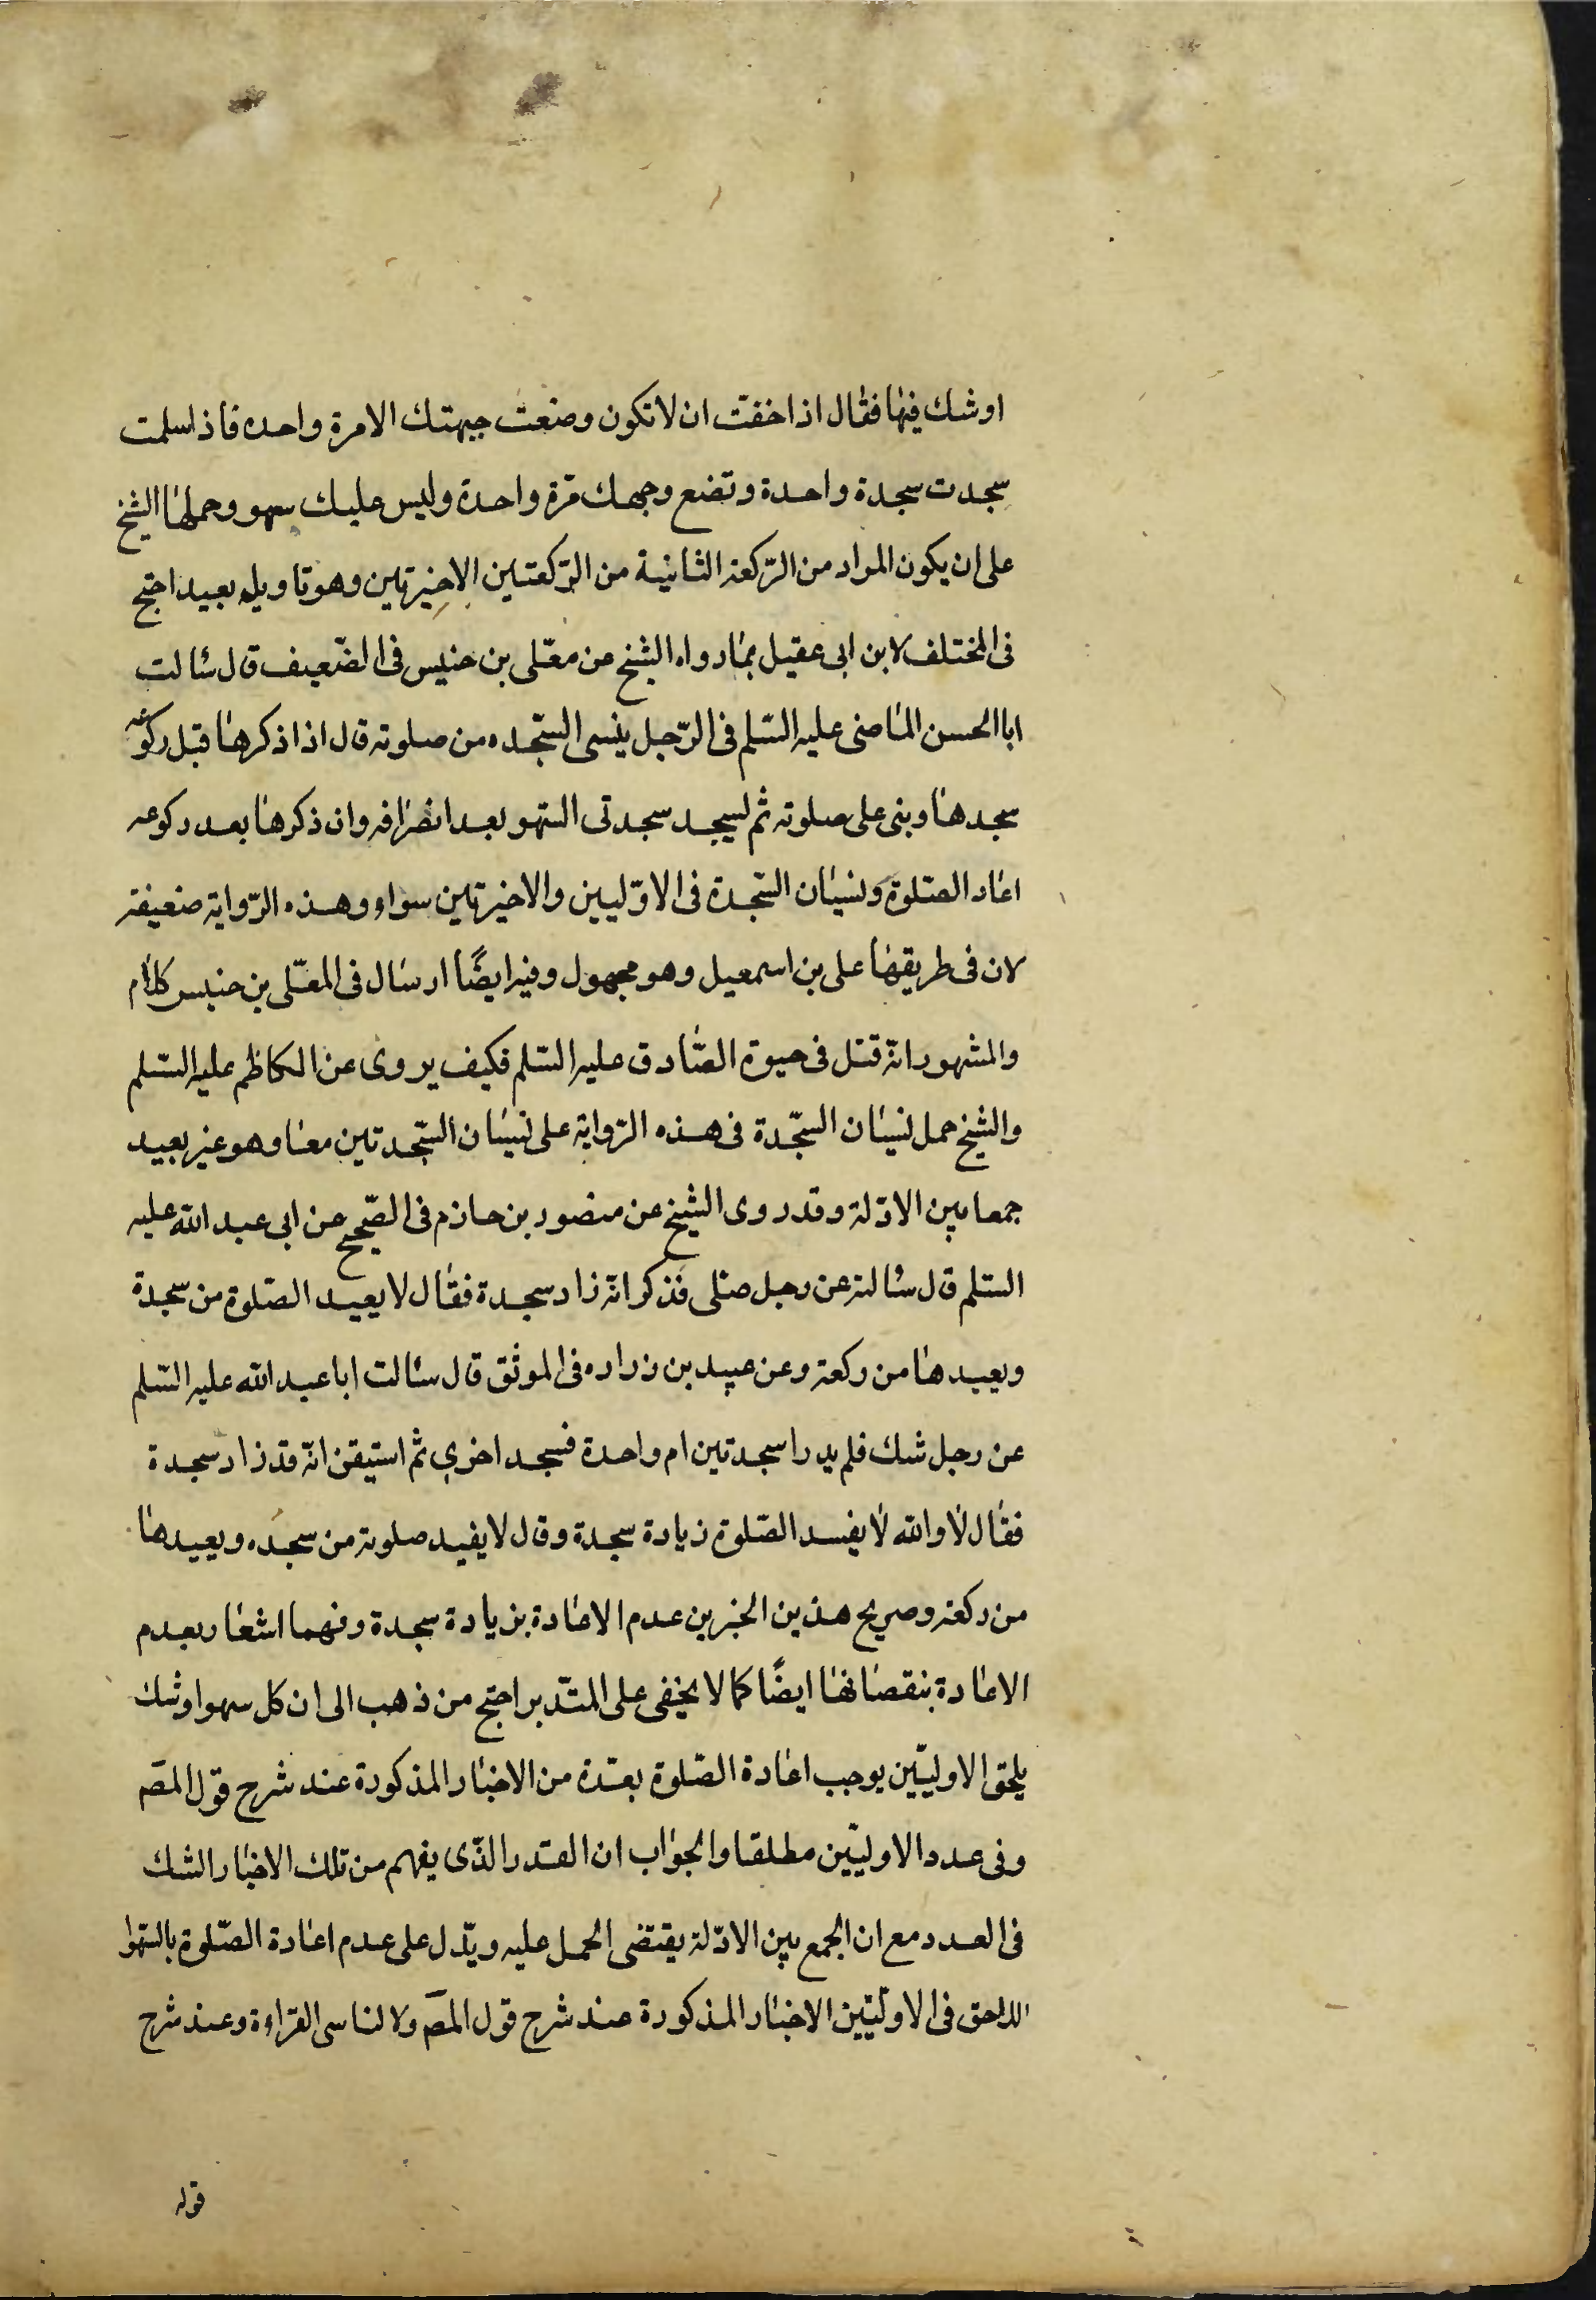 او شك فيها فقال اذا خفت ان لا تكون وضعت جبهتك الا مرة واحده فاذا سلمت
سجدت سجدة واحدة و تضع وجهك مرّة واحدة وليس عليك سهو وحملها الشيخ
على ان يكون المراد من الرّكعة الثانية من الرّكعتين الاخيرتين وهو تاويله بعيد احتج
فى المختلف لابن ابى عقيل بما رواه الشيخ عن معّلى بن خنيس فى الضّعيف قال سئالت
ابا الحسن الماضى عليه السّلم فى الرّجل ينسى السّجده من صلوته قال اذا ذكرها قبل ركوعه
سجدها وبنى على صلوته ثم ليسجد سجدتى السّهو بعد انصرافه وان ذكرها بعد ركوعه
اعاد الصّلوة ونسيان السّجدة فى الاوّليين والاخيرتين سواء وهذه الرّواية ضعيفة
لان فى طريقها على بن اسمعيل وهو مجهول وفيه ايضًا ارسال فى المعّلى بن خنيس كلام
والمشهور انّه قتل فى حيوة الصّادق عليه السّلم فكيف يروى عن الكاظم عليه السّلم
والشيخ حمل نسيان السّجّدة فى هذه الرّواية على نسيان السّجدتين معا وهو غير بعيد
جمعا بين الادّلة وقد روى الشيخ عن منصور بن حازم فى الصّحيح عن ابى عبد الله عليه
السّلم قال سئالته عن رجل صّلى فذكر انّه زاد سجدة فقال لا يعيد الصّلوة من سجدة
ويعيدها من ركعة وعن عبيد بن زراره فى الموثق قال سئالت ابا عبد الله عليه السّلم
عن رجل شك فلم يدر اسجدتين ام واحدة فسجد اخرى ثم استيقن انّه قد زاد سجدة
فقال لا والله لا يفسد الصّلوة زيادة سجدة وقال لا يفيد صلوته من سجده ويعيدها
من ركعة وصريح هذين الخبرين عدم الاعادة بزيادة سجدة وفهما اشعار بعدم
الاعادة بنقصانها ايضًا كما لا يخفى على المتّدبر احتج من ذهب الى ان كل سهو او شك
يلحق الاوليّين يوجب اعادة الصّلوة بعّدة من الاخبار المذكورة عند شرح قول المصّ
وفى عدد الاوليّين مطلقا والجواب ان القّدر الذّى يفهم من تلك الاخبار الشك
فى العدد مع ان الجمع بين الادّلة يقتضى الحمل عليه ويّدل على عدم اعادة الصّلوة بالسّهو ا
للاحق فى الاوليّين الاخبار المذكورة عند شرح قول المصّ ولا لناسى القراءة وعند شرح
قوله